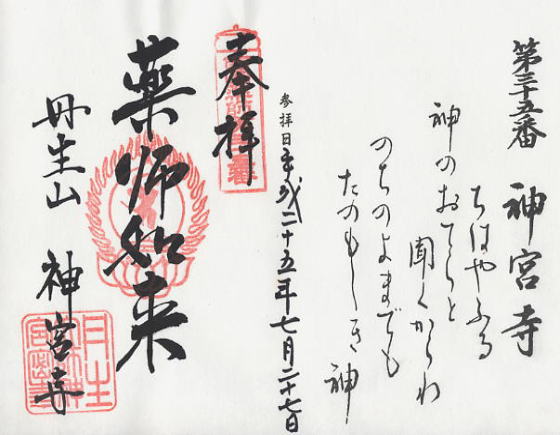 第三十五番 神宮寺
ちはやふる
神のおてらと
聞くからわ
のちのよまでも
たのもしき神
参拝日 平成二十五年七月二十七日
奉拝
薬師如来
丹生山 神宮寺